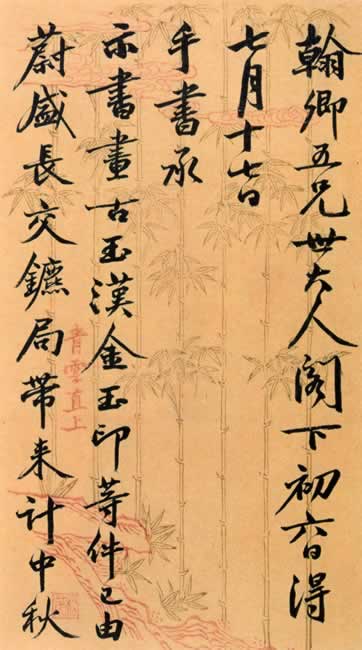 翰卿五兄世大人閣下初六日得
七月十七日
手書承
示書畫古玉漢金玉印等件已由
蔚盛長交鑣局帶来計中秋
青雲直上